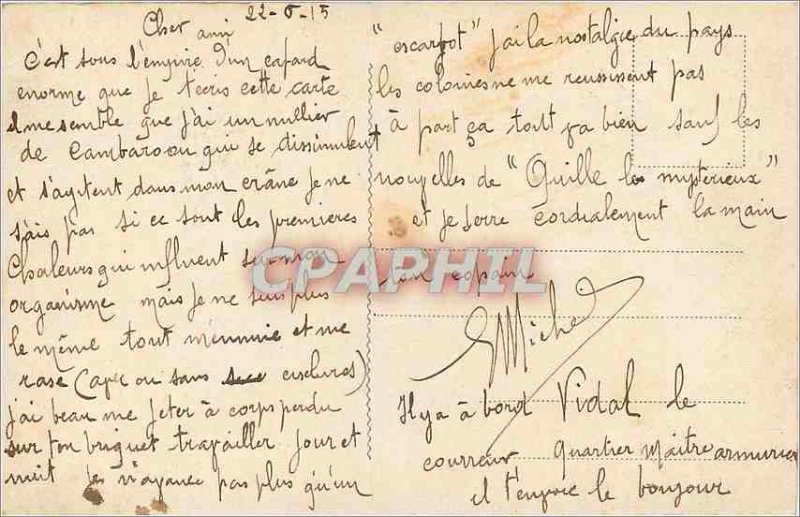 22-6-15
Cher ami
C'est sous l'empire d'un cafard
enorme que je t'ecris cette carte
il me semble que j'ai un millier
de Cambaroou qui se dissimulent
et s'agitent dans mon crâne je ne
sais pas si ce sont les premieres
chaleurs qui influent sur mon
organisme mais je ne suis plus
le même tout m'ennuie et me
rase (avec ou sans enclures)
j'ai beau me jeter à corps perdu
sur ton briquet travailler jour et
nuit je n'avance pas plus qu'un
"escargot" j'ai la nostalgie du pays
les colonies ne me reussissent pas
à part ça tout va bien sauf les
nouvelles de "Quille les mysterieux"
et je serre cordialement la main
ton copain
Michel
Il y a à bord Vidal le
courreur Quartier Maitre armurier
il t'envoie le bonjour
CPAPHIL